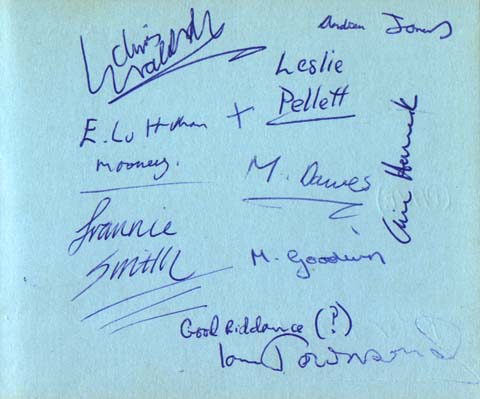 Chris
Andrew Jones
Leslie
Pellett
E. Luttman +
Mooney.
M. Dawes
Frannie
Smith
M. Goodwin
Good Riddance (?)
Ian Townsend